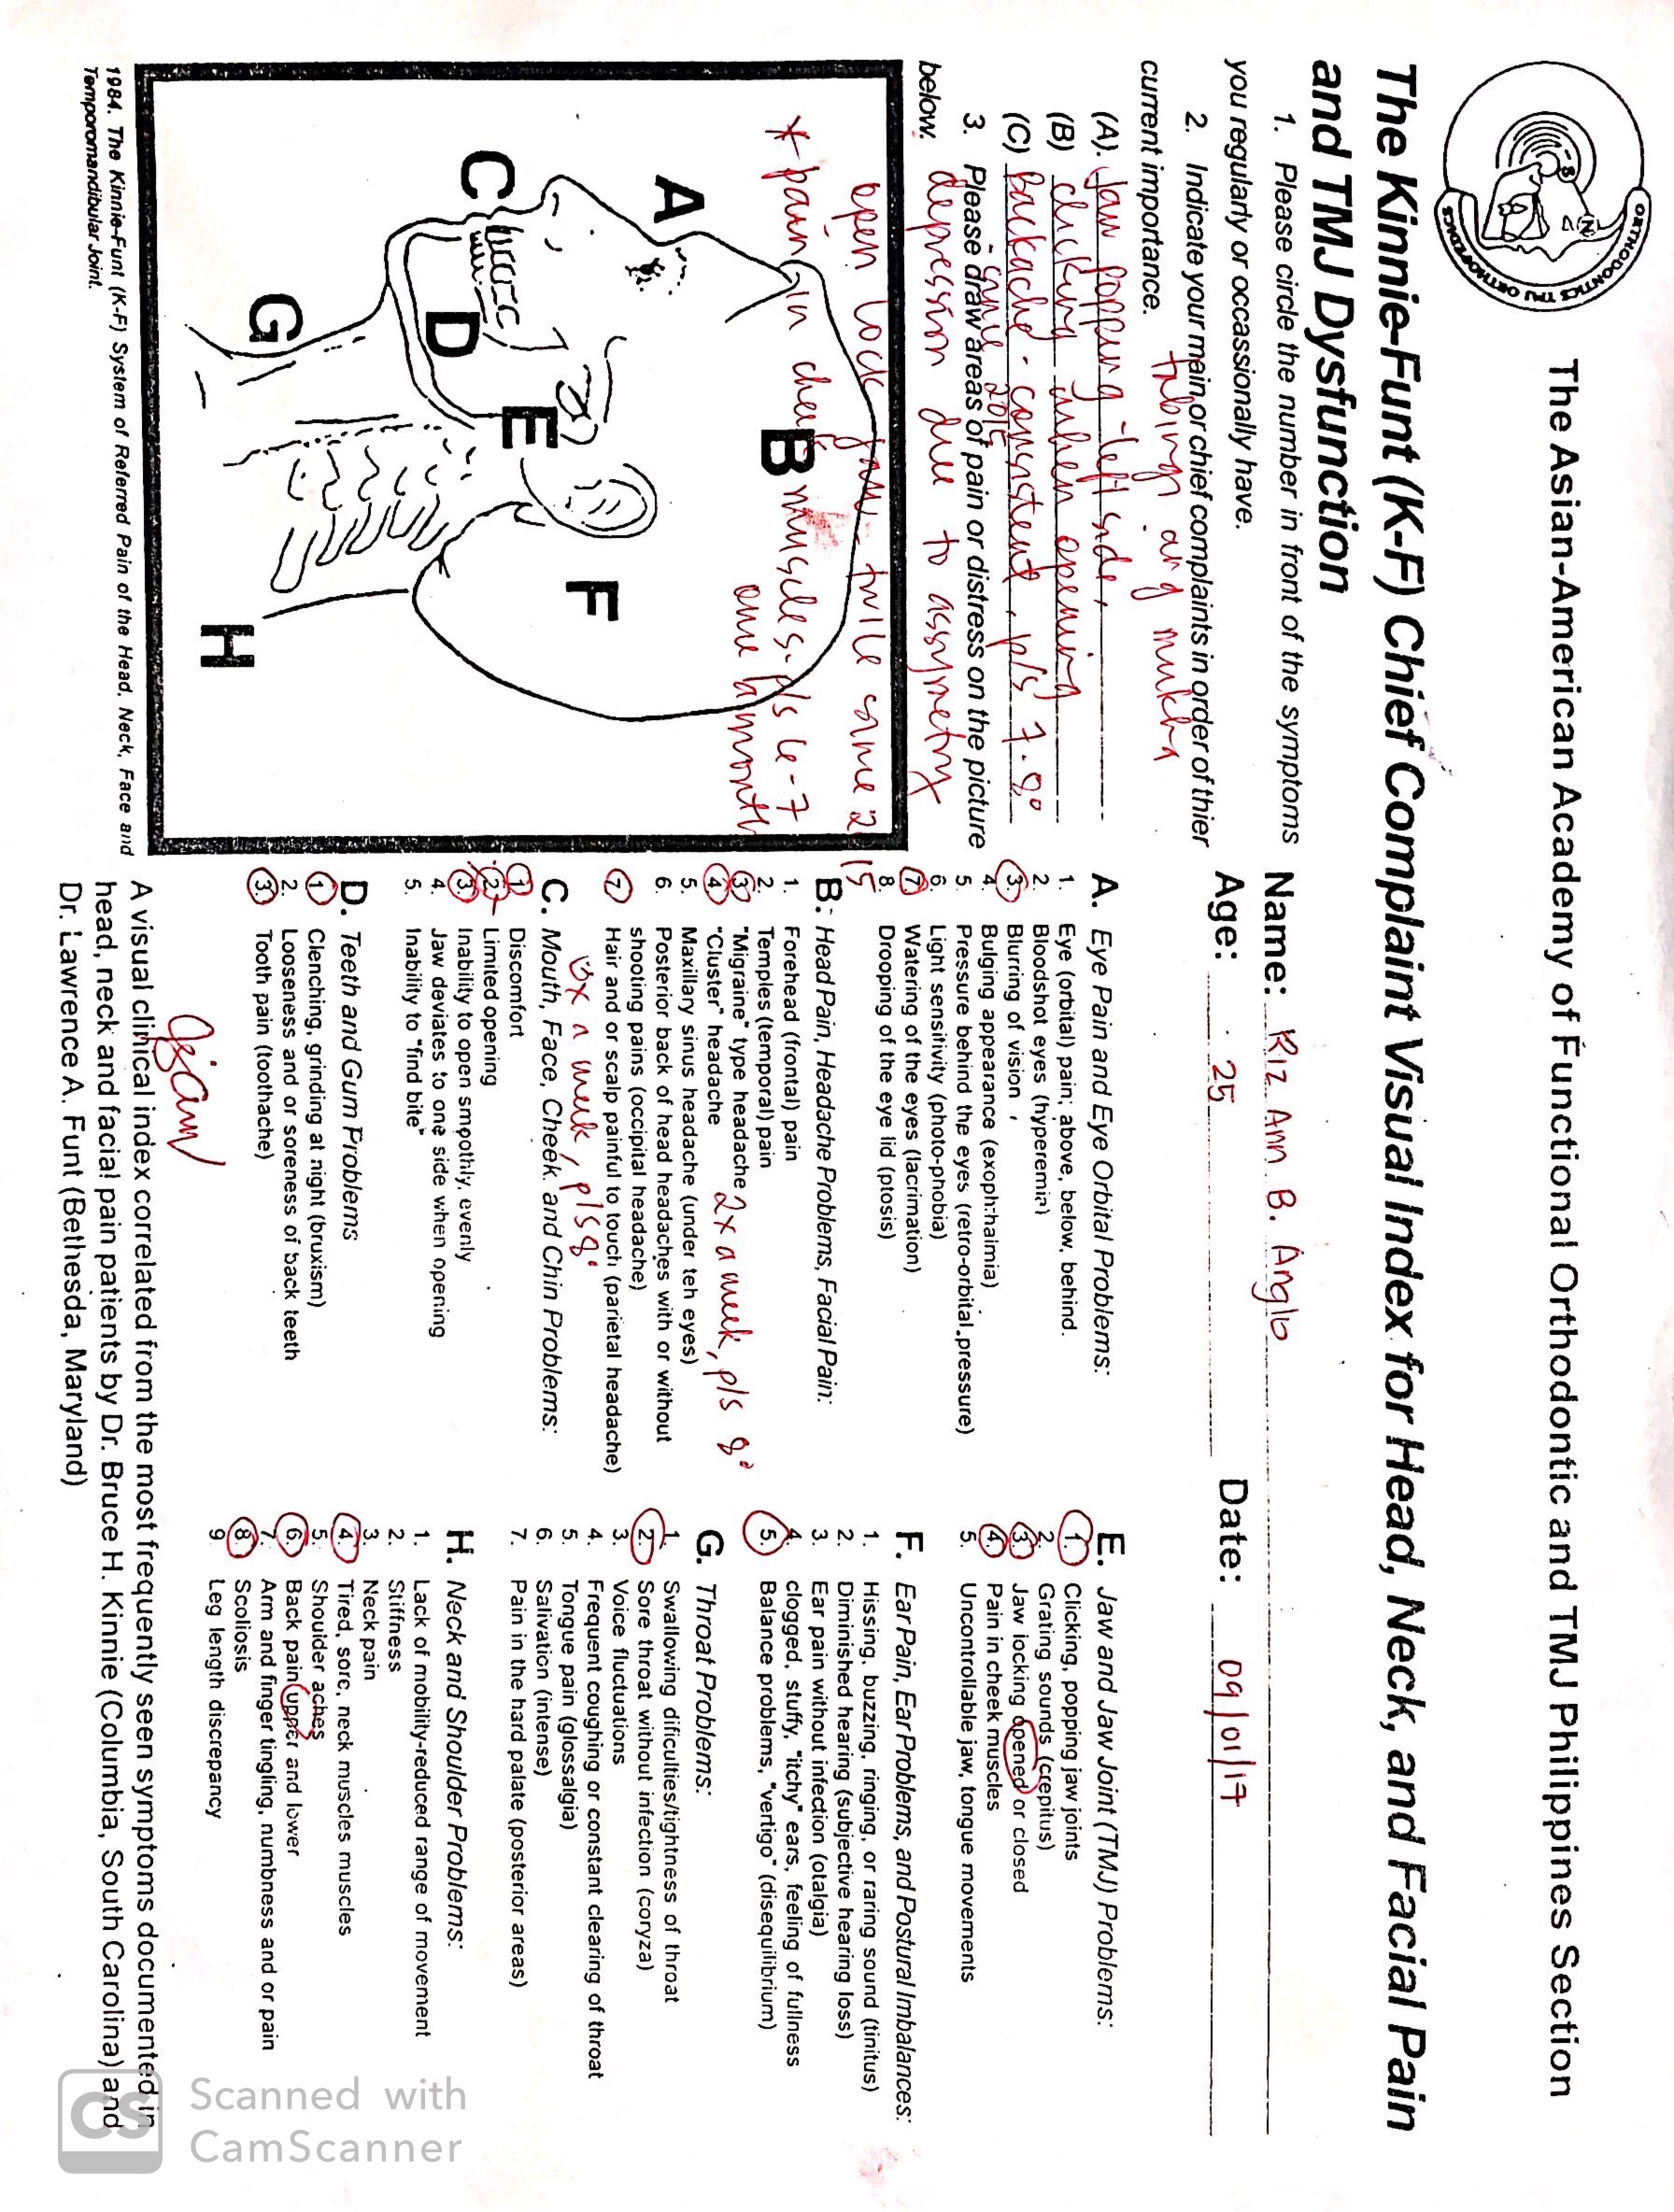 ORTHODONTICS TMJ ORTHOPEDICS
The Asian-American Academy of Functional Orthodontic and TMJ Philippines Section
The Kinnie-Funt (K-F) Chief Complaint Visual Index for Head, Neck, and Facial Pain
and TMJ Dysfunction
1. Please circle the number in front of the symptoms
you regularly or occassionally have.
2. Indicate your main or chief complaints in order of thier
current importance.
tabingi ang mukha
(A). Jaw popping - left side,
(B) clicking when opening
(C) backache - consistent, p/s 7-8°
- since 2015
3. Please draw areas of pain or distress on the picture
below.
depression due to assymetry
open lock jaw - twice since 2015
* pain in cheek muscles - p/s 6-7
once a month
A
B
C
D
E
F
G
H
1984. The Kinnie-Funt (K-F) System of Referred Pain of the Head, Neck, Face and
Temporomandibular Joint.
Name: Riz Ann B. Anglo
Age: 25
Date: 09/01/17
A. Eye Pain and Eye Orbital Problems:
1. Eye (orbital) pain; above, below, behind.
2 Bloodshot eyes (hyperemia)
3. Blurring of vision
4 Bulging appearance (exophthalmia)
5. Pressure behind the eyes (retro-orbital pressure)
6. Light sensitivity (photo-phobia)
7. Watering of the eyes (lacrimation)
8. Drooping of the eye lid (ptosis)
B: Head Pain, Headache Problems, Facial Pain:
1. Forehead (frontal) pain
2. Temples (temporal) pain
3. "Migraine" type headache 2x a week, p/s 8°
4. "Cluster" headache
5. Maxillary sinus headache (under teh eyes)
6. Posterior back of head headaches with or without
shooting pains (occipital headache)
7 Hair and or scalp painful to touch (parietal headache)
3x a week, p/s 8°
C. Mouth, Face, Cheek. and Chin Problems:
1. Discomfort
2. Limited opening
3. Inability to open smoothly, evenly
4. Jaw deviates to one side when opening
5. Inability to "find bite"
D. Teeth and Gum Problems:
1 Clenching, grinding at night (bruxism)
2. Looseness and or soreness of back teeth
3. Tooth pain (toothache)
E. Jaw and Jaw Joint (TMJ) Problems:
1. Clicking, popping jaw joints
2. Grating sounds (crepitus)
3. Jaw locking opened or closed
4. Pain in cheek muscles
5. Uncontrollable jaw, tongue movements
F. Ear Pain, Ear Problems, and Postural Imbalances:
1. Hissing, buzzing, ringing, or raring sound (tinitus)
2. Diminished hearing (subjective hearing loss)
3. Ear pain without infection (otalgia)
4. clogged, stuffy, "itchy" ears, feeling of fullness
5. Balance problems, "vertigo" (disequilibrium)
G. Throat Problems:
1. Swallowing dificulties/tightness of throat
2. Sore throat without infection (coryza)
3. Voice fluctuations
4. Frequent coughing or constant clearing of throat
5. Tongue pain (glossalgia)
6. Salivation (intense)
7. Pain in the hard palate (posterior areas)
H. Neck and Shoulder Problems:
1. Lack of mobility-reduced range of movement
2. Stiffness
3. Neck pain
4. Tired, sore, neck muscles muscles
5. Shoulder aches
6. Back pain (upper and lower
7. Arm and finger tingling, numbness and or pain
8. Scoliosis
9. Leg length discrepancy
A visual clinical index correlated from the most frequently seen symptoms documented in
head, neck and facial pain patients by Dr. Bruce H. Kinnie (Columbia, South Carolina) and
Dr. Lawrence A. Funt (Bethesda, Maryland)
CS
Scanned with
CamScanner